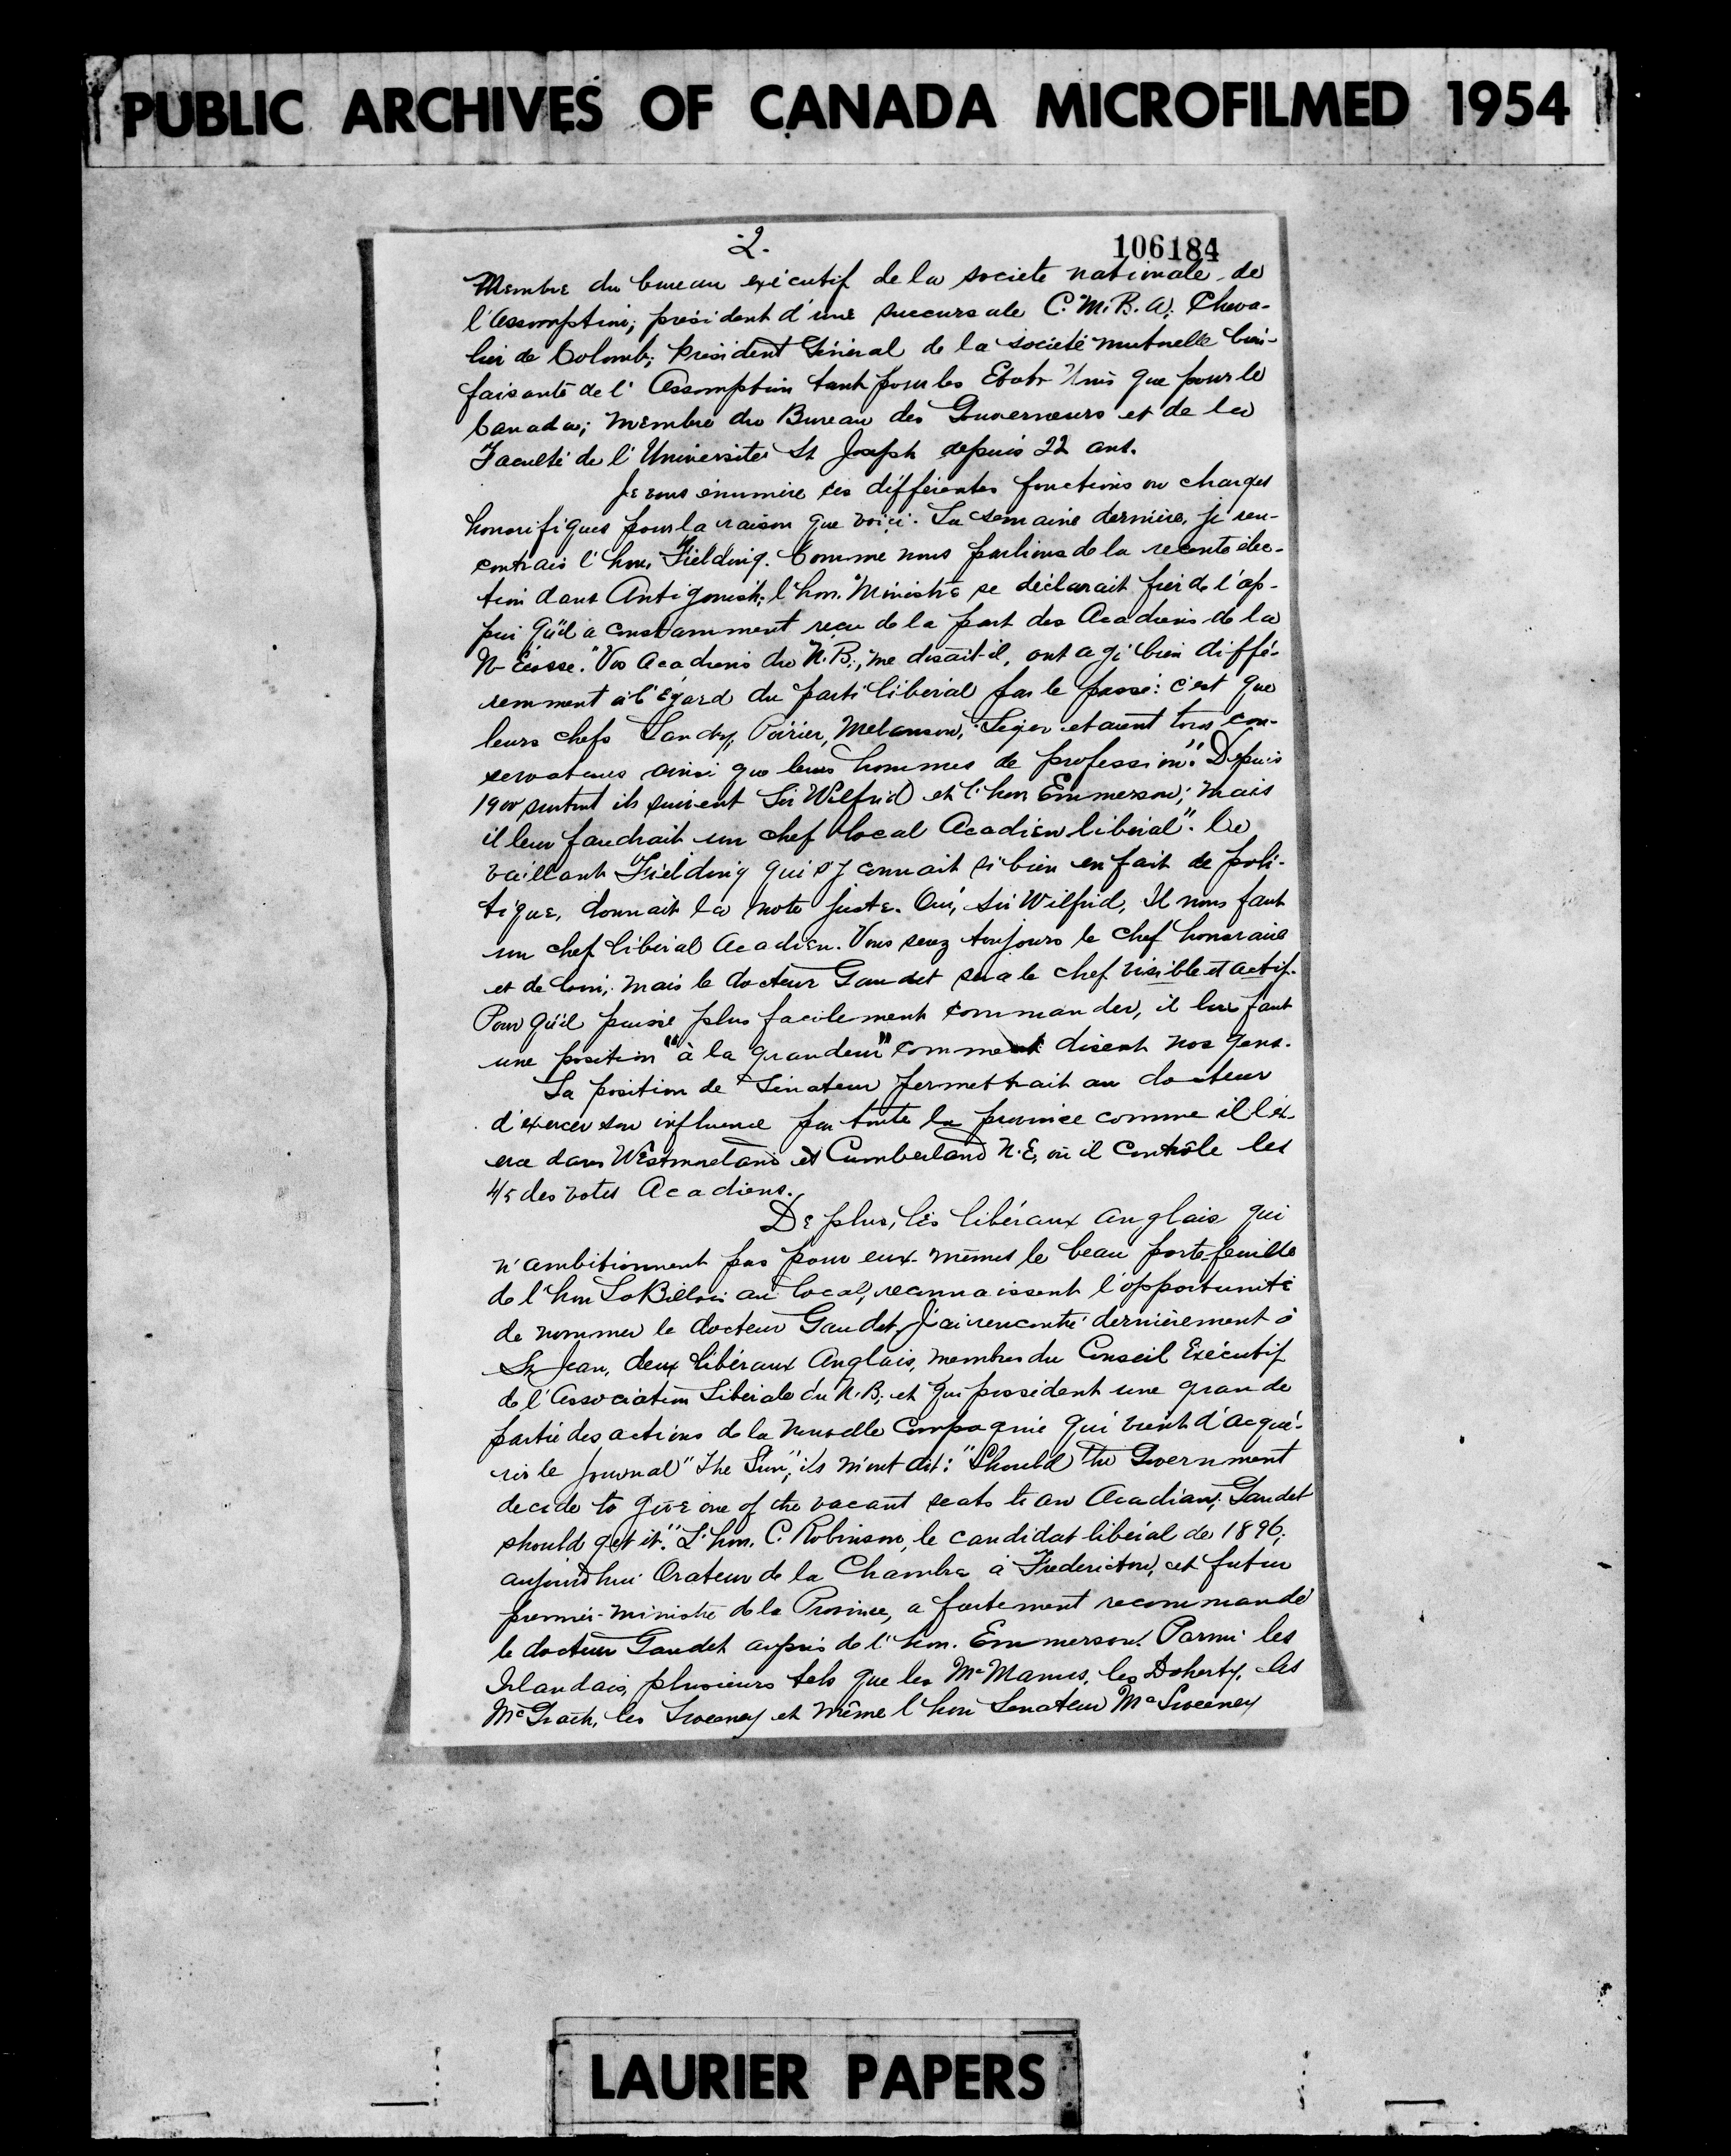 PUBLIC ARCHIVES OF CANADA MICROFILMED 1954
-2.
106184
Membre du bureau exécutif de la societe nationale de
l'Assomption; président d'une succursale C.M.B.A; Cheva-
lier de Colomb; Président Général de la société mutuelle bien-
faisante de l'Assomption tant pour les Etats Unis que pour le
Canada; membre du Bureau des Gouverneurs et de la
Faculté de l'Université St Joseph depuis 22 ans.
Je vous énumère ces différentes fonctions ou charges
honorifiques pour la raison que voici. La semaine dernière, je ren-
contrais l'hon. Fielding. Comme nous parlions de la recente élec-
tion dans Antigonish, l'hon. Ministre se déclarait fier de l'ap-
pui qu'il a constamment reçu de la part des Acadiens de la
N-Écosse. "Vos Acadiens du N.B., me disait-il, ont agi bien diffé-
remment à l'égard du parti libéral par le passé: c'est que
leurs chefs Landry, Poirier, Melanson, Leger etaient tous con-
servateurs ainsi que leurs hommes de profession". Depuis
1900 surtout ils suivent Sir Wilfrid et l'hon Emmerson; mais
il leur faudrait un chef local Acadien libéral". Le
vaillant Fielding qui s'y connait si bien en fait de poli-
tique, donnait la note juste. Oui, Sir Wilfrid, Il nous faut
un chef libéral Acadien. Vous serez toujours le chef honoraire
et de loin; mais le docteur Gaudet sera le chef visible et actif.
Pour qu'il puisse plus facilement commander, il lui faut
une position "à la grandeur" comme disent nos gens.
La position de Sénateur permettrait au docteur
d'exercer son influence par toute la province comme il l'ex-
erce dans Westmorland et Cumberland N.E, où il contrôle les
4/5 des votes Acadiens.
De plus, les libéraux anglais qui
n'ambitionnent pas pour eux-mêmes le beau porte-feuille
de l'hon LaBillois au local, reconnaissent l'opportunité
de nommer le docteur Gaudet. J'ai rencontré dernièrement à
St Jean, deux libéraux Anglais, membres du Conseil Exécutif
de l'Association Libérale du N.B. et qui possèdent une grande
partie des actions de la nouvelle compagnie qui vient d'acqué-
rir le journal "The Sun", ils m'ont dit: "Should the Government
decide to give one of the vacant seats to an Acadian, Gaudet
should get it." L'hon. C. Robinson, le candidat libéral de 1896,
aujourd'hui Orateur de la Chambre à Fredericton, et futur
premier-ministre de la Province, a fortement recommandé
le docteur Gaudet auprès de l'hon. Emmerson. Parmi les
Irlandais, plusieurs tels que les McManus, les Doherty, les
McGrath, les Sweeney et même l'hon Senateur McSweeney
LAURIER PAPERS